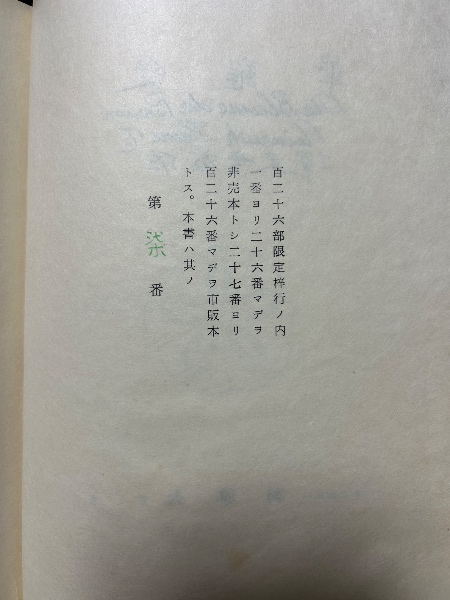 百二十六部限定梓行ノ内
一番ヨリ二十六番マデヲ
非売本トシ二十七番ヨリ
百二十六番マデヲ市販本
トス。本書ハ其ノ
第 柒 番